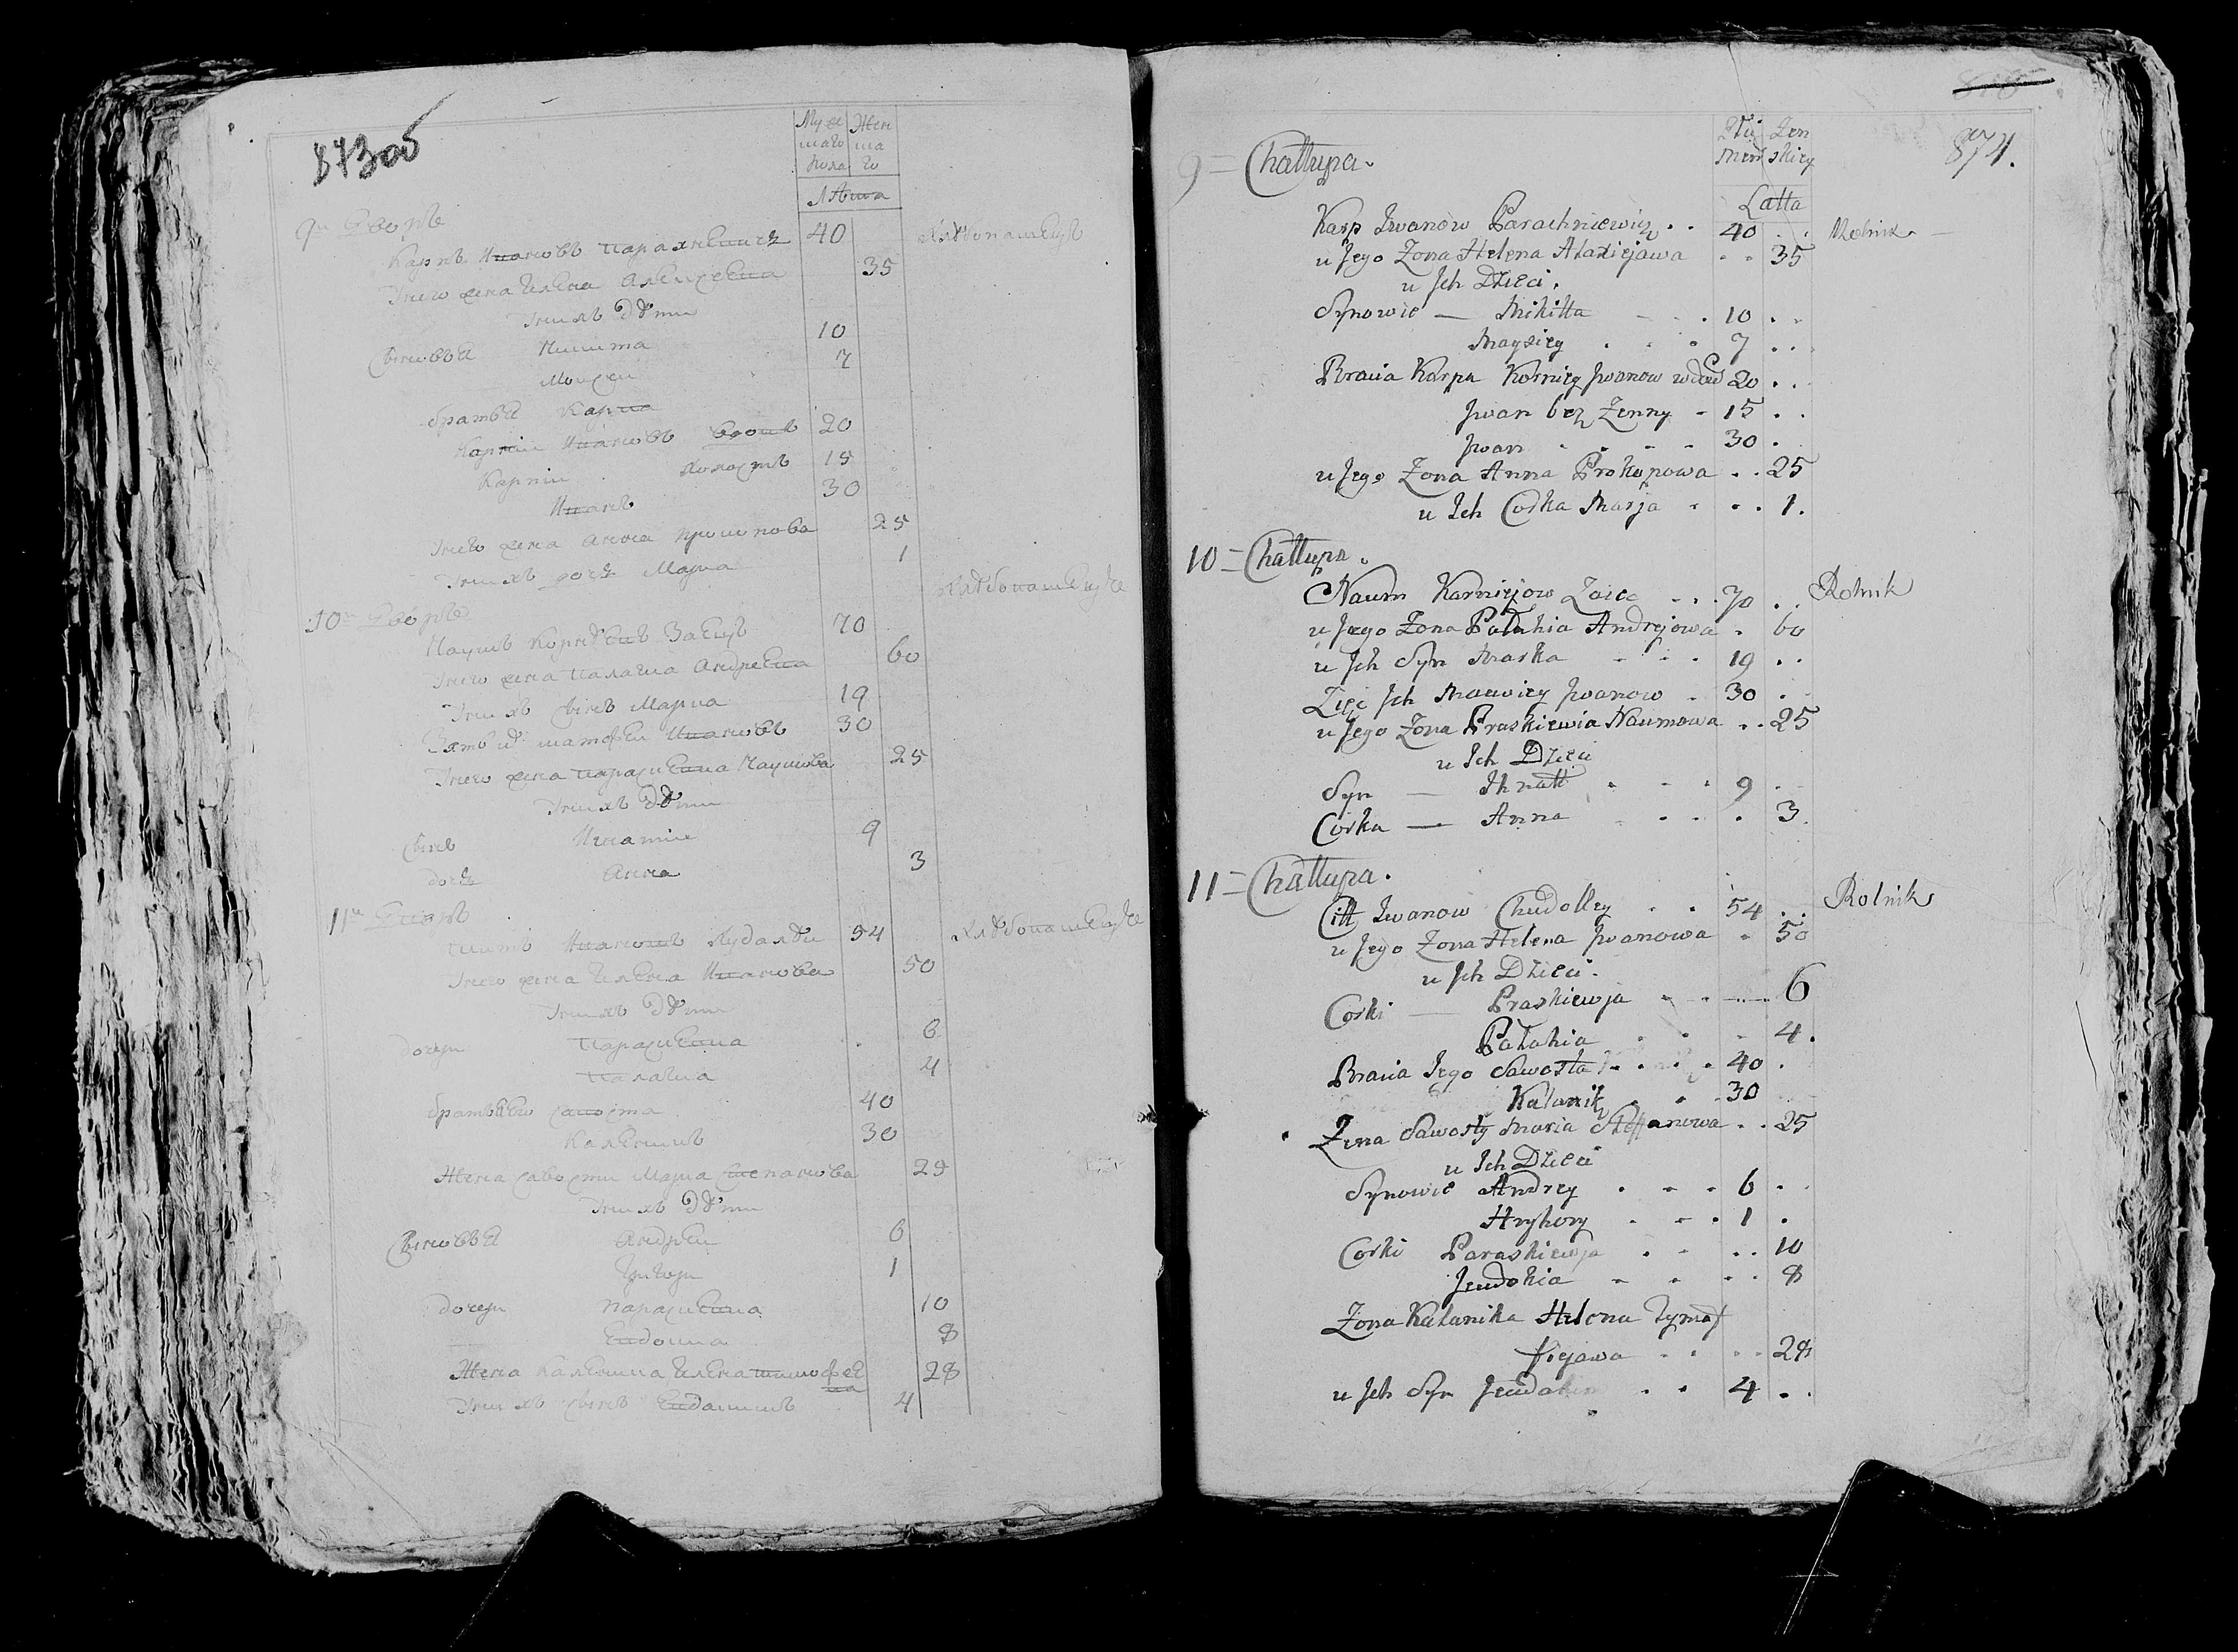 873об
Муже Жен
скаго ска
пола го
Лѣта
9й Дворъ
Карпъ Ивановъ Парахневичь 40 Хлѣбопашецъ
У него жена Елена Алексеева 35
У нихъ дѣти
Сыновья Никита 10
Моисей 7
братья Карпа
Карнiй Ивановъ вдовъ 20
холостъ 15
Иванъ 30
У него жена Анна Прокопова 25
У нихъ дочь Марья 1
10й Дворъ Хлѣбопашецъ
Наумъ Корнѣевъ Заецъ 70
У него жена Палагея Андреева 60
У нихъ сынъ 19
Зять их Матфей Ивановъ 30
У него жена Парасковья Наумова 25
У нихъ дѣти
Сынъ Игнатiй 9
дочь Анна 3
11й Дворъ Хлѣбопашецъ
Титъ Ивановъ Худалѣй 54
У него жена Елена Иванова 50
У нихъ дѣти
дочери 6
4
братья его Савоста 40
30
Жена Савосты Марья Степанова 25
У нихъ дѣти
Сыновья Андрей 6
Григори 1
дочери 10
Евдокия 8
Жена Елена Тимофее
ва 28
У нихъ сынъ Евдакимъ 4
874.
Płci Zen
Męs skiey
9 = Chałłupa.
Latta
Karp Iwanow Parachniewicz . . 40 . . Rolnik
u Jego Zona Helena Alaxiejawa . . 35
u Jch Dzieci.
Synowie — Mikitta . 10 . .
Maysiey . . . 7 . . .
Bracia Karpa Korniey Jwanow wdow 20 . . .
Jwan bez Zenny - 15 . .
Jwan . . . 30 .
u Jego Zona Anna Prokopowa . . 25
u Ich Corka Marja . . . 1.
10 = Chałłupa.
Naum Karniejow Zaiec . . . 70 . . Rolnik
u Jego Zona Pałahia Andrejowa . 60
u Jch Syn Maska . . . 19 . .
Zięć Jch Macwiey Jwanow . 30 .
u Jego Zona Praskiewia Naumowa . . 25
u Ich Dzieci
Syn — Ihnatt . . . 9 . .
Corka — Anna . . . . 3.
11 = Chałłupa.
Citt Iwanow Chudolley . . 54 . . Rolnik
u Jego Zona Helena Jwanowa . 50
u Jch Dzieci.
Corki — Praskiewja . . . 6
Pałahia . . . 4.
Bracia Jego Sawosta . . . 40 .
Kalanik . . 30
Zena Sawosty Maria Steffanowa . . 25
u Ich Dzieci
Synowie Andrey . . . 6 . .
Hryhory . . . 1 .
Corki Paraskiewja . . . . 10
Jeudokia . . . . 8
Zona Kalanika Helena Tymof
fiejawa . . . . 28
u Jch Syn Jeudakim . . 4 . .